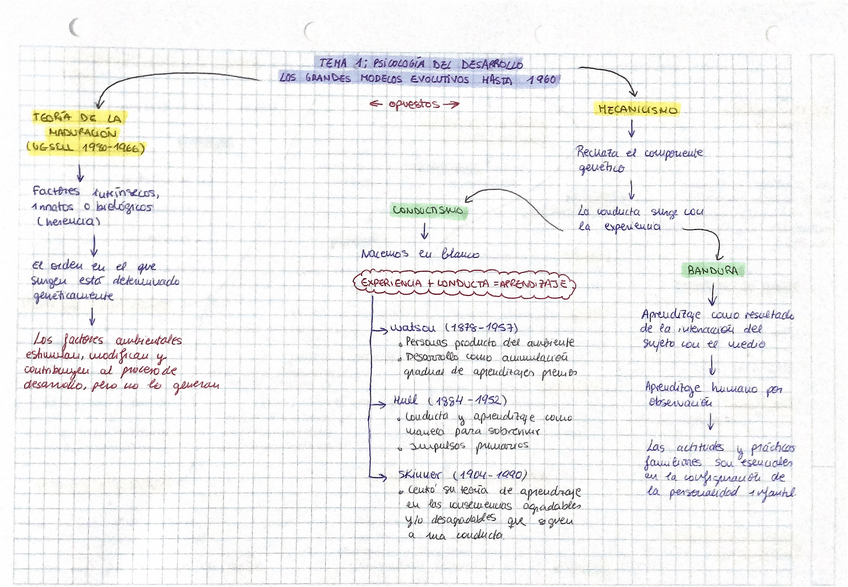 TEMA 1: PSICOLOGÍA DEL DESARROLLO
LOS GRANDES MODELOS EVOLUTIVOS HASTA 1960
← opuestos →
TEORÍA DE LA
MADURACIÓN
(GESELL 1980-1966)
Factores intrínsecos,
innatos o biológicos
(herencia)
El orden en el que
surgen está determinado
genéticamente
Los factores ambientales
estimulan, modifican y
contribuyen al proceso de
desarrollo, pero no lo generan
MECANICISMO
Rechaza el componente
genético
La conducta surge con
la experiencia
CONDUCTISMO
Nacemos en blanco
EXPERIENCIA + CONDUCTA = APRENDIZAJE
Watson (1878-1957)
• Personas producto del ambiente
• Desarrollo como acumulación
gradual de aprendizajes previos
Hull (1884-1952)
• Conducta y aprendizaje como
manera para sobrevivir
• Impulsos primarios
Skinner (1904-1990)
• Centró su teoría de aprendizaje
en las consecuencias agradables
y/o desagradables que siguen
a una conducta
BANDURA
Aprendizaje como resultado
de la interacción del
sujeto con el medio
Aprendizaje humano por
observación
Las actitudes y prácticas
familiares son esenciales
en la configuración de
la personalidad infantil